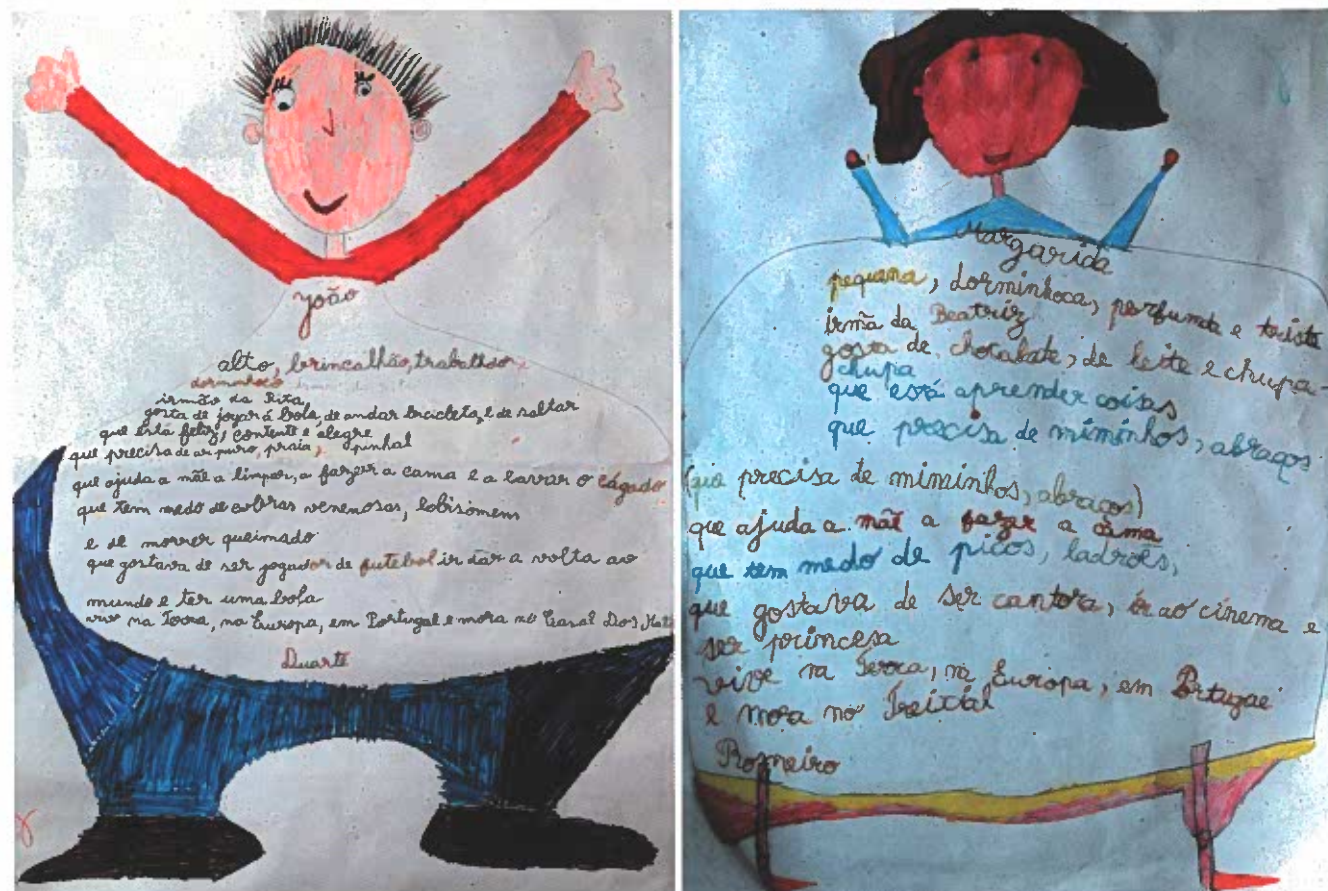 João
alto, brincalhão, trabalhador,
dorminhoco
irmão da Rita,
gosta de jogar á bola, de andar bicicleta, e de saltar
que está feliz, contente e alegre
que precisa de ar puro, praia, pinhal
que ajuda a mãe a limpar, a fazer a cama e a lavrar o cágado
que tem medo de cobras venenosas, lobisomens
e de morrer queimado
que gostava de ser jogador de futebol ir dar a volta ao
mundo e ter uma bola
vive na Terra, na Europa, em Portugal e mora no Casal Dos Mat
Duarte
Margarida
pequena, dorminhoca, perfumda e triste
irmã da Beatriz
gosta de chocalate, de leite e chupa-
chupa
que está aprender coisas
que precisa de miminhos, abraços
(que precisa de miminhos, abraços)
que ajuda a mãe a fazer a cama
que tem medo de picos, ladrões,
que gostava de ser cantora, ir ao cinema e
ser princesa
vive na Terra, na Europa, em Portugal
e mora no Freixial
Romeiro